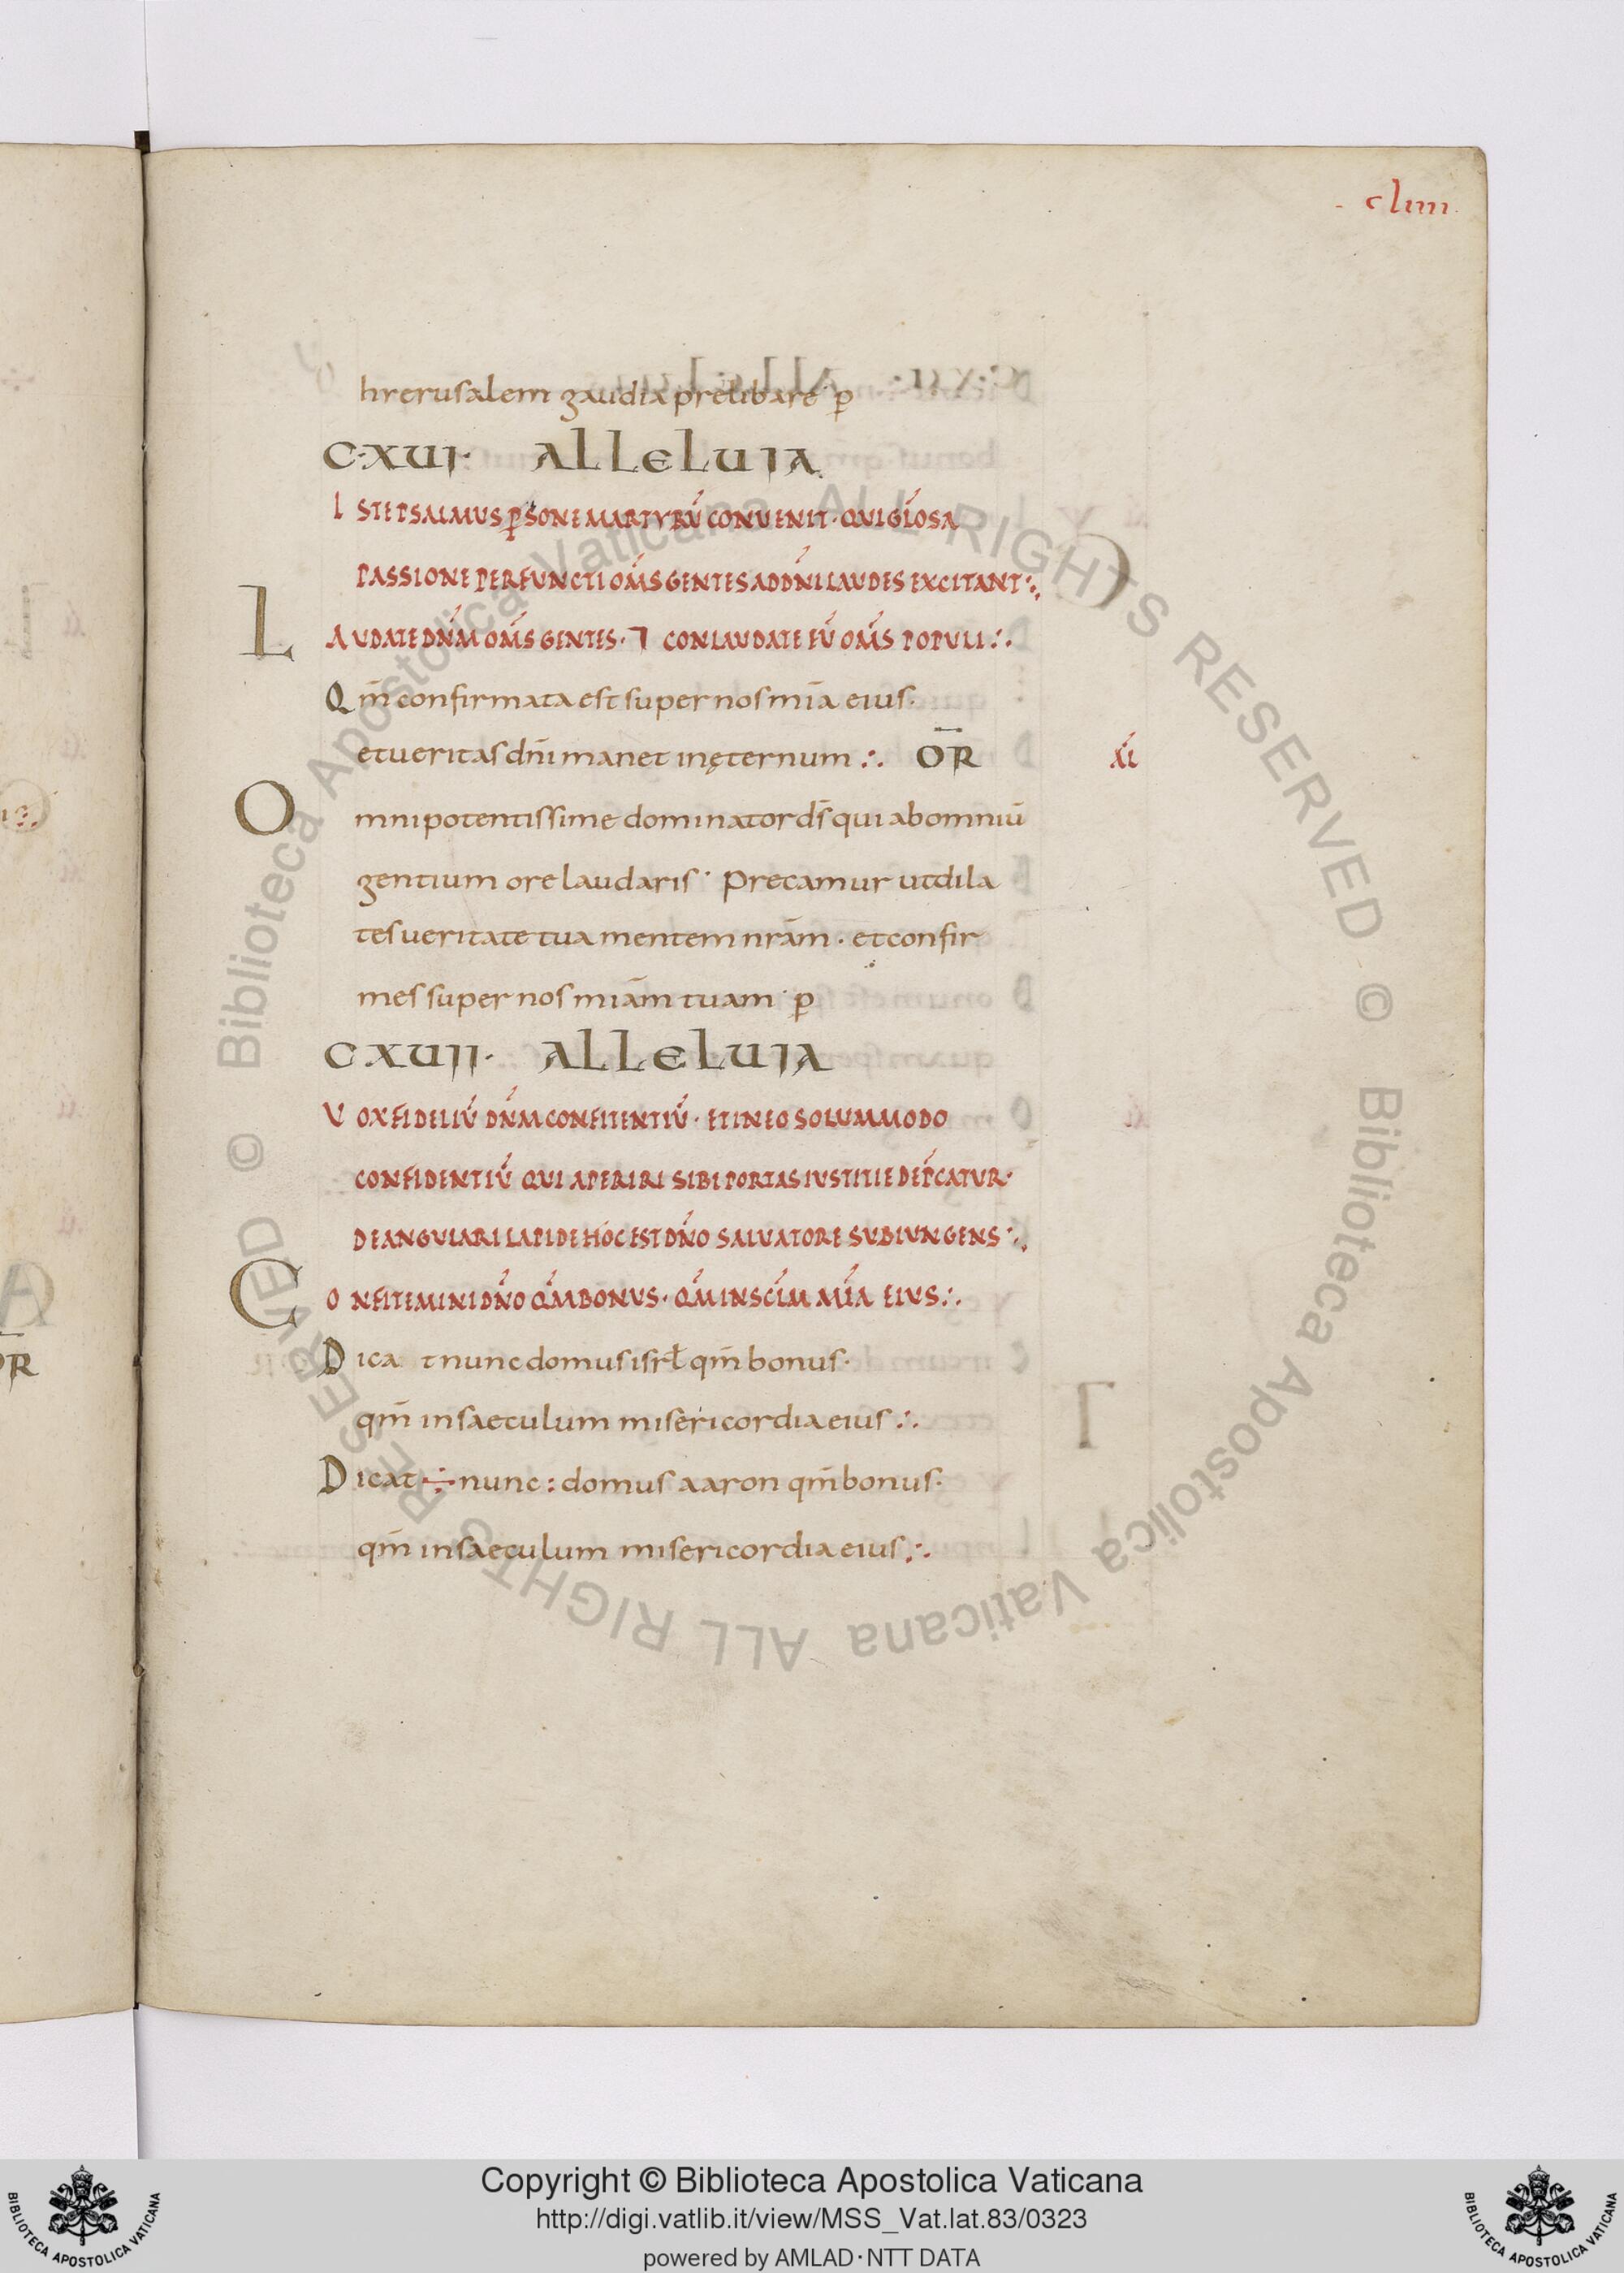 · cliiii ·
hierusalem gaudia prelibare · p̄
C·XVI· ALLELUIA
ISTE PSALMUS P̱SONE MARTYRŪ CONVENIT · QUI GL̄OSA
PASSIONE PERFUNCTI OM̄S GENTES AD DN̄I LAUDES EXCITANT ∴
LAUDATE DN̄M OM̄S GENTES · ⁊ CONLAUDATE EŪ OM̄S POPULI ∴
Qm̄ confirmata est super nos mīa eius ·
et ueritas dn̄i manet in ęternum ∴ OR̄ xi
Omnipotentissime dominator ds̄ qui ab omniū
gentium ore laudaris · Precamur ut dila
tes ueritate tua mentem nrām · et confir
mes super nos miām tuam · p̄
CXVII · ALLELUIA
VOX FIDELIŪ DN̄M CONFITENTIŪ · ET IN EO SOLUMMODO
CONFIDENTIŪ QUI APERIRI SIBI PORTAS IUSTITIE DEP̄CATUR ·
DE ANGULARI LAPIDE HOC EST DN̄O SALUATORE SUBIUNGENS ∴
CONFITEMINI DN̄O QM̄ BONUS · QM̄ IN SCL̄M MĪA EIUS ∴
Dica t nunc domus isrł qm̄ bonus ·
qm̄ in saeculum misericordia eius ∴
Dicat ÷ nunc : domus aaron qm̄ bonus ·
qm̄ in saeculum misericordia eius ∴
OR̄
Biblioteca Apostolica Vaticana ALL RIGHTS RESERVED ©
Biblioteca Apostolica Vaticana ALL RIGHTS RESERVED ©
Copyright © Biblioteca Apostolica Vaticana
http://digi.vatlib.it/view/MSS_Vat.lat.83/0323
powered by AMLAD·NTT DATA
BIBLIOTECA APOSTOLICA VATICANA
BIBLIOTECA APOSTOLICA VATICANA